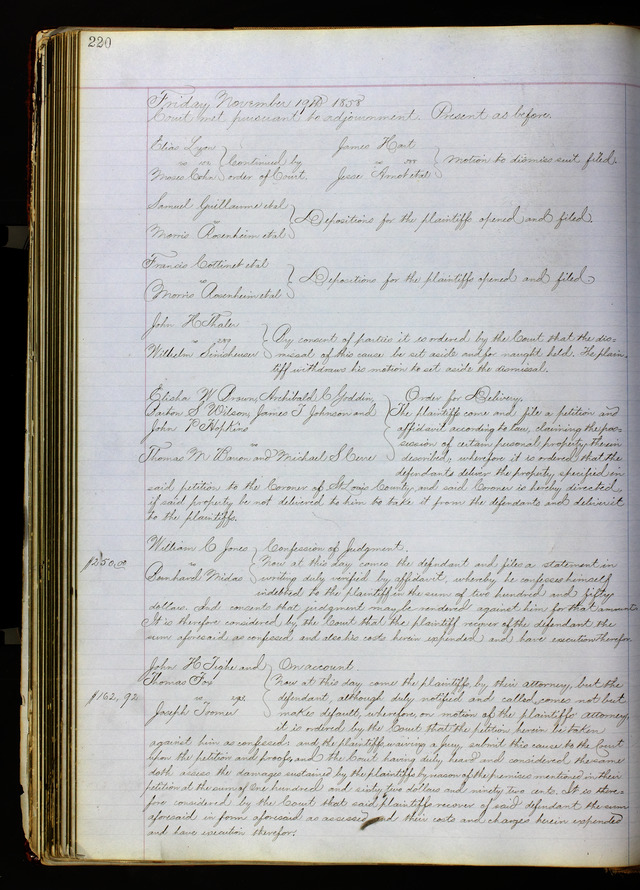 220
Friday November 19th 1858
Court met pursuant to adjournment. Present as before.
Elias Lyon
vs
Moses Cohn
Continued by
order of Court.
James Hart
vs
Jesse Arnot et al
Motion to dismiss suit filed.
Samuel Guillaume et al
vs
Morris Rosenheim et al
Depositions for the plaintiffs opened and filed.
Francis Cottinet et al
vs
Morris Rosenheim et al
Depositions for the plaintiffs opened and filed.
John H Thaler
vs
Wilhelm
By consent of parties it is ordered by the Court that the dis-
missal of this cause be set aside and for naught held. The plain-
tiff withdraws his motion to set aside the dismissal.
Elisha W Brown, Archibald C Goddin,
Parkon S Wilson, James T Johnson and
John P Hopkins
vs
Thomas M Baron and Michael S Cerre
Order for Delivery.
The plaintiff come and file a petition and
affidavit according to law, claiming the pos-
session of certain personal property therein
described, wherefore it is ordered that the
defendants deliver the property specified in
said petition to the Coroner of St Louis County, and said Coroner is hereby directed,
if said property be not delivered to him to take it from the defendants and deliver it
to the plaintiffs.
$250.00
William C Jones
vs
Bernhard Midas
Confession of Judgment.
Now at this day comes the defendant and files a statement in
writing duly verified by affidavit, whereby he confesses himself
indebted to the plaintiff in the sum of two hundred and fifty
dollars. And consents that judgment may be rendered against him for that amount.
It is therefore considered by the Court that the plaintiff recover of the defendant the
sum aforesaid as confessed and also his costs herein expended and have execution therefor.
$162,92
John H Tighe and
Thomas Fox
vs
Joseph Tromer
On account
Now at this day come the plaintiffs by their attorney, but the
defendant, although duly notified and called, comes not but
makes default, wherefore, on motion of the plaintiffs attorney,
it is ordered by the Court that the petition herein be taken
against him as confessed: and the plaintiffs waiving a jury, submit this cause to the Court
upon the petition and proofs, and the Court having duly heard and considered the same
doth assess the damages sustained by the plaintiffs by reason of the premises mentioned in their
petition at the sum of One hundred and sixty two dollars and ninety two cents. It is there-
fore considered by the Court that said plaintiffs recover of said defendant the sum
aforesaid in form aforesaid as assessed and their costs and charges herein expended
and have execution therefor.